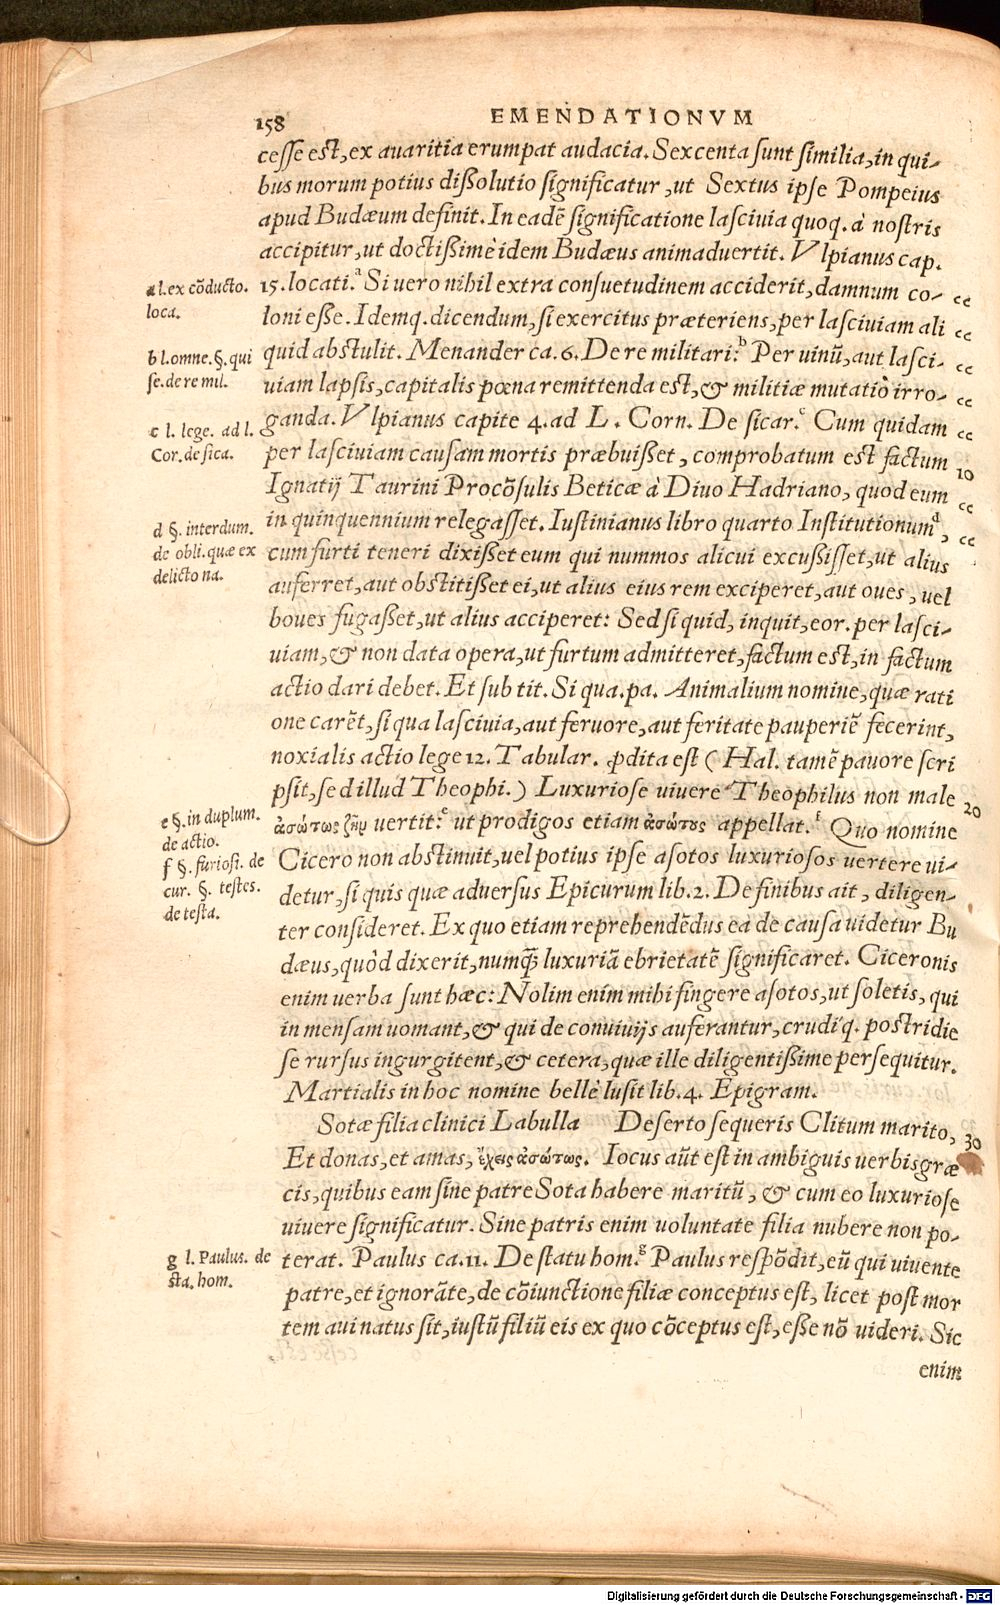 158 EMENDATIONVM
cesse est, ex auaritia erumpat audacia. Sexcenta sunt similia, in qui-
bus morum potius dißolutio significatur, ut Sextus ipse Pompeius
apud Budæum definit. In eadē significatione lasciuia quoq. à nostris
accipitur, ut doctißimè idem Budæus animaduertit. Vlpianus cap.
15. locati.ᵃ Si uero nihil extra consuetudinem acciderit, damnum co- cc
loni eße. Idemq. dicendum, si exercitus præteriens, per lasciuiam ali cc
quid abstulit. Menander ca. 6. De re militari:ᵇ Per uinū, aut lasci- cc
uiam lapsis, capitalis pœna remittenda est, & militiæ mutatio irro- cc
ganda. Vlpianus capite 4. ad L. Corn. De sicar.ᶜ Cum quidam cc
per lasciuiam causam mortis præbuißet, comprobatum est factum 10
Ignatij Taurini Procōsulis Beticæ à Diuo Hadriano, quod eum cc
in quinquennium relegasset. Iustinianus libro quarto Institutionumᵈ, cc
cum furti teneri dixißet eum qui nummos alicui excußisset, ut alius
auferret, aut obstitißet ei, ut alius eius rem exciperet, aut oues, uel
boues fugaßet, ut alius acciperet: Sed si quid, inquit, eor. per lasci-
uiam, & non data opera, ut furtum admitteret, factum est, in factum
actio dari debet. Et sub tit. Si qua. pa. Animalium nomine, quæ rati
one carēt, si qua lasciuia, aut feruore, aut feritate pauperiē fecerint,
noxialis actio lege 12. Tabular. ꝓdita est (Hal. tamē pauore scri
psit, sed illud Theophi.) Luxuriose uiuere Theophilus non male 20
ἀσώτως ζῆν uertit:ᵉ ut prodigos etiam ἀσώτους appellat.ᶠ Quo nomine
Cicero non abstinuit, uel potius ipse asotos luxuriosos uertere ui-
detur, si quis quæ aduersus Epicurum lib. 2. De finibus ait, diligen-
ter consideret. Ex quo etiam reprehendēdus ea de causa uidetur Bu
dæus, quòd dixerit, numq̃ luxuriā ebrietatē significaret. Ciceronis
enim uerba sunt hæc: Nolim enim mihi fingere asotos, ut soletis, qui
in mensam uomant, & qui de conuiuijs auferantur, crudiq́. postridie
se rursus ingurgitent, & cetera, quæ ille diligentißime persequitur.
Martialis in hoc nomine bellè lusit lib. 4. Epigram.
Sotæ filia clinici Labulla Deserto sequeris Clitum marito, 30
Et donas, et amas, ἔχεις ἀσώτως. Iocus aūt est in ambiguis uerbis græ
cis, quibus eam sine patre Sota habere maritū, & cum eo luxuriose
uiuere significatur. Sine patris enim uoluntate filia nubere non po-
terat. Paulus ca. 11. De statu hom.ᵍ Paulus respōdit, eū qui uiuente
patre, et ignorāte, de cōiunctione filiæ conceptus est, licet post mor
tem aui natus sit, iustū filiū eis ex quo cōceptus est, eße nō uideri. Sic
enim
a l. ex cōducto.
loca.
b l. omne. §. qui
se. de re mil.
c l. lege. ad l.
Cor. de sica.
d §. interdum.
de obli. quæ ex
delicto na.
e §. in duplum.
de actio.
f §. furiosi. de
cur. §. testes.
de testa.
g l. Paulus. de
sta. hom.
Digitalisierung gefördert durch die Deutsche Forschungsgemeinschaft - DFG